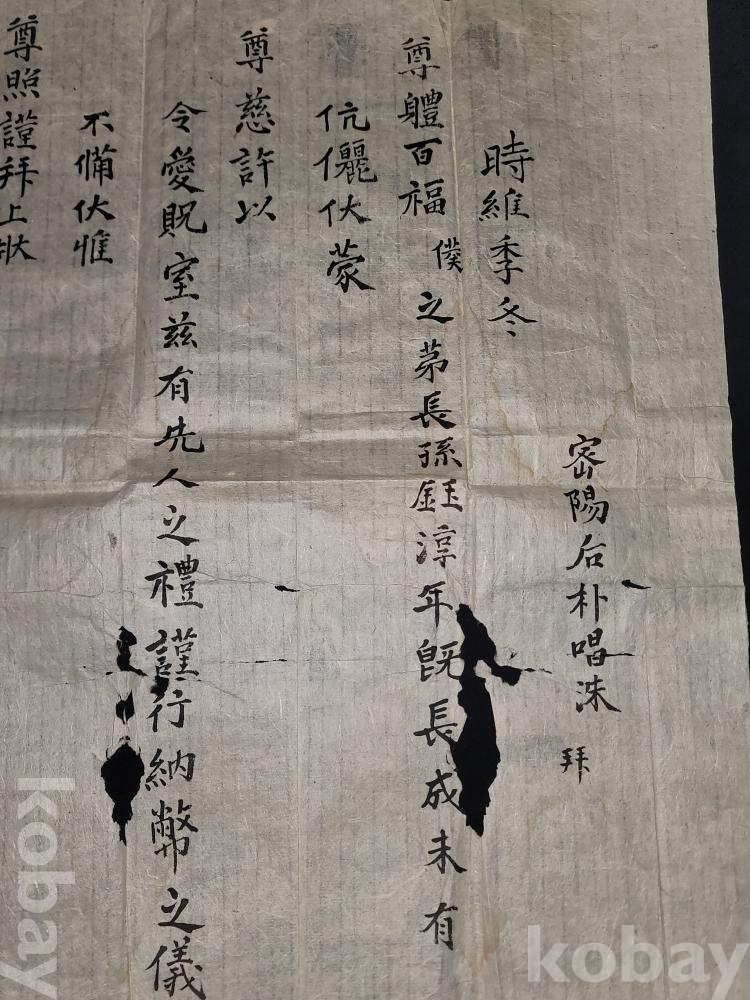 密陽后朴唱洙 拜
時維季冬
尊軆百福 僕之苐長孫鈺淳年旣長成未有
伉儷伏蒙
尊慈許以
令愛貺室茲有先人之禮謹行納幣之儀
不備伏惟
尊照謹拜上狀
kobay
kobay